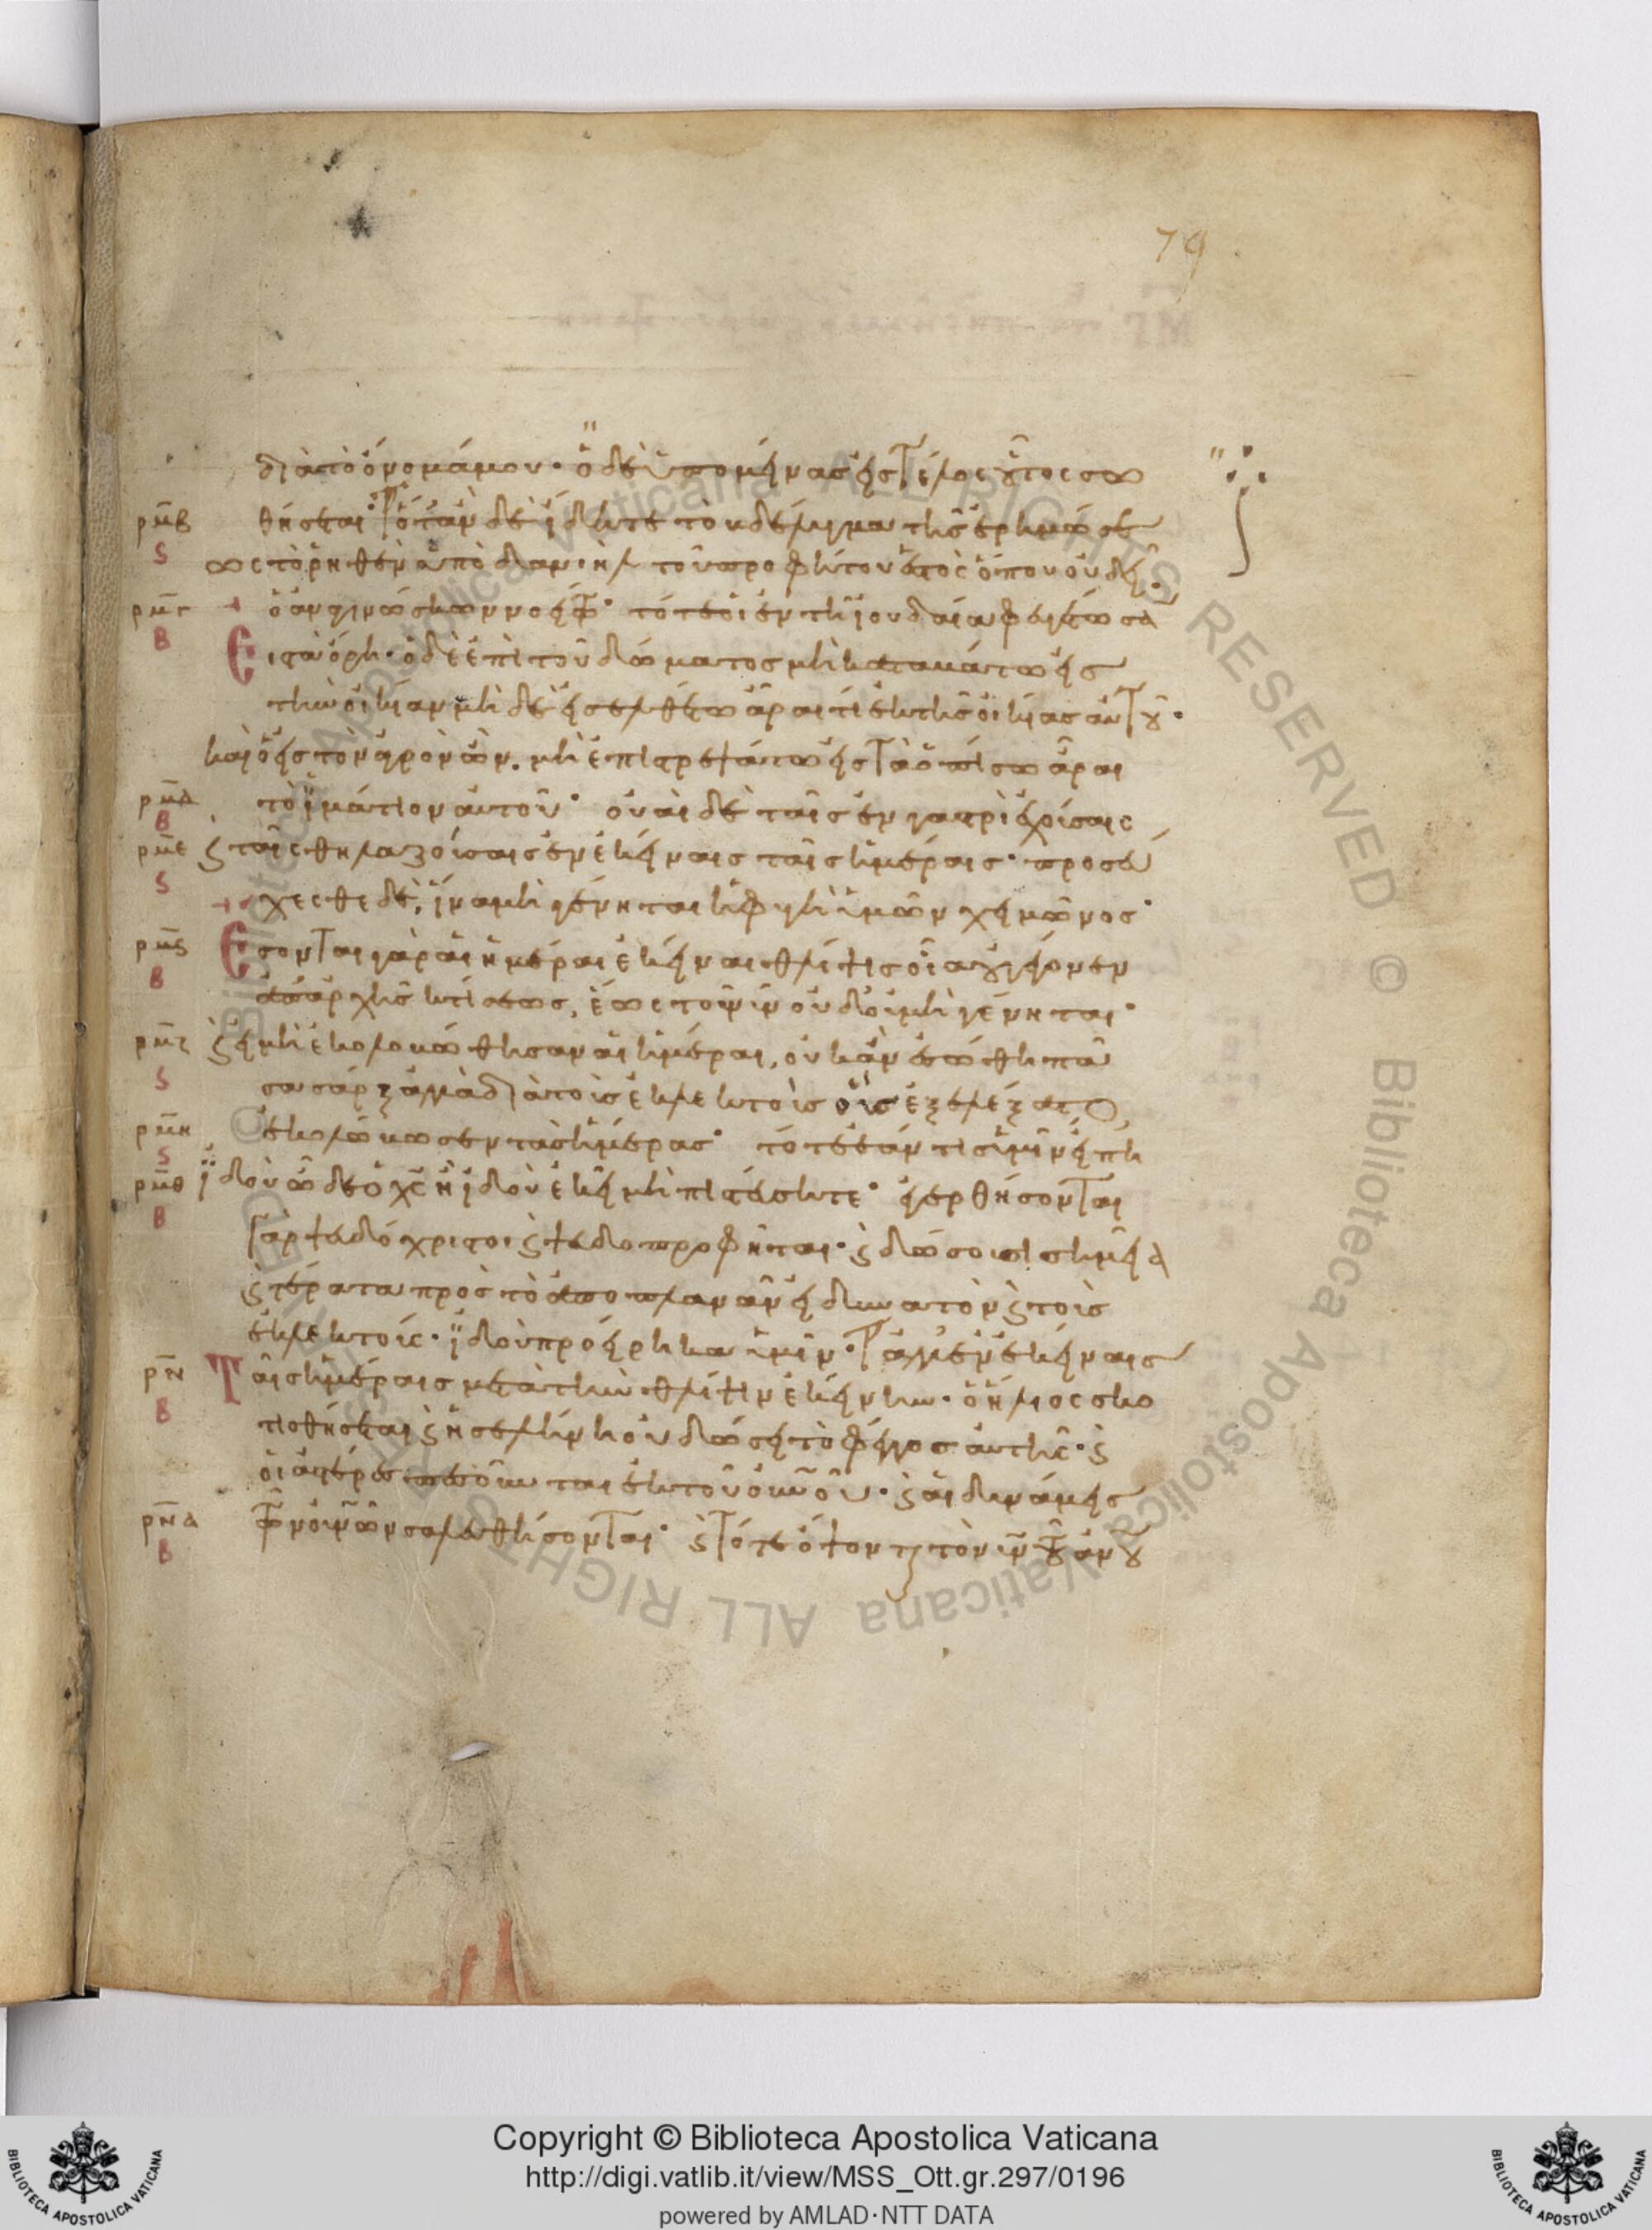 79
διὰ τὸ ὄνομά μου· ὁ δὲ ὑπομείνας εἰς τέλος οὗτος σω
ρμβ θήσεται· ὅταν δὲ ἴδητε τὸ βδέλυγμα τῆς ἐρημώσε
ς ως τὸ ῥηθὲν ἀπὸ δανιὴλ τοῦ προφήτου ἑστὸς ὅπου οὐ δεῖ·
ρμγ ὁ ἀναγινώσκων νοείτω· τότε οἱ ἐν τῇ ἰουδαία φευγέτωσαν
β Εἰς τὰ ὄρη· ὁ δὲ ἐπὶ τοῦ δώματος μὴ καταβάτω εἰς
τὴν οἰκίαν μὴ δὲ εἰσελθέτω ἆραι τί ἐκ τῆς οἰκίας αὐτοῦ·
καὶ ὁ εἰς τὸν ἀγρὸν ὢν. μὴ ἐπιστρεψάτω εἰς τὰ ὀπίσω ἆραι
ρμδ τὸ ἱμάτιον αὐτοῦ· οὐαὶ δὲ ταῖς ἐν γαστρὶ ἐχούσαις
β
ρμε ϛ ταῖς θηλαζούσαις ἐν ἐκείναις ταῖς ἡμέραις· προσεύ
ς χεσθε δὲ, ἵνα μὴ γένηται ἡ φυγὴ ὑμῶν χειμῶνος·
ρμς Εσονται γὰρ αἱ ἡμέραι ἐκεῖναι θλίψις οἵα οὐ γέγονεν
β ἀπαρχῆς κτίσεως, ἕως τοῦ νῦν οὐδ οὐ μὴ γένηται·
ρμζ ϛ εἰ μὴ ἐκολοβώθησαν αἱ ἡμέραι, οὐκ ἂν ἐσώθη πᾶ
ς σα σάρξ ἀλλὰ διὰ τοὺς ἐκλεκτοὺς οὓς ἐξελέξατο,
ρμη ἐκολόβωσεν τὰς ἡμέρας· τότε ἐάν τις ὑμῖν εἴπη
ς
ρμθ ἰδοὺ ὧδε ὁ χς ἢ ἰδοὺ ἐκεῖ μὴ πιστεύσητε· ἐγερθήσονται
β γὰρ ψευδόχριστοι ϛ ψευδοπροφῆται· ϛ δώσουσι σημεῖα
ϛ τέρατα πρὸς τὸ ἀποπλανᾶν εἰ δυνατὸν ϛ τοὺς
ἐκλεκτούς· ἰδοὺ προείρηκα ὑμῖν· ἀλλ ἐν ἐκείναις
ρν Ταῖς ἡμέραις μετὰ τὴν θλίψιν ἐκείνην· ὁ ἥλιος σκο
β τισθήσεται ϛ ἡ σελήνη οὐ δώσει τὸ φέγγος αὐτῆς· ϛ
οἱ ἀστέρες πεσοῦνται ἐκ τοῦ οὐνοῦ· ϛ αἱ δυνάμεις
ρνα τῶν οὐνῶν σαλευθήσονται· ϛ τότε ὄψονται τὸν υν τοῦ ανου
β
Copyright © Biblioteca Apostolica Vaticana
http://digi.vatlib.it/view/MSS_Ott.gr.297/0196
powered by AMLAD·NTT DATA